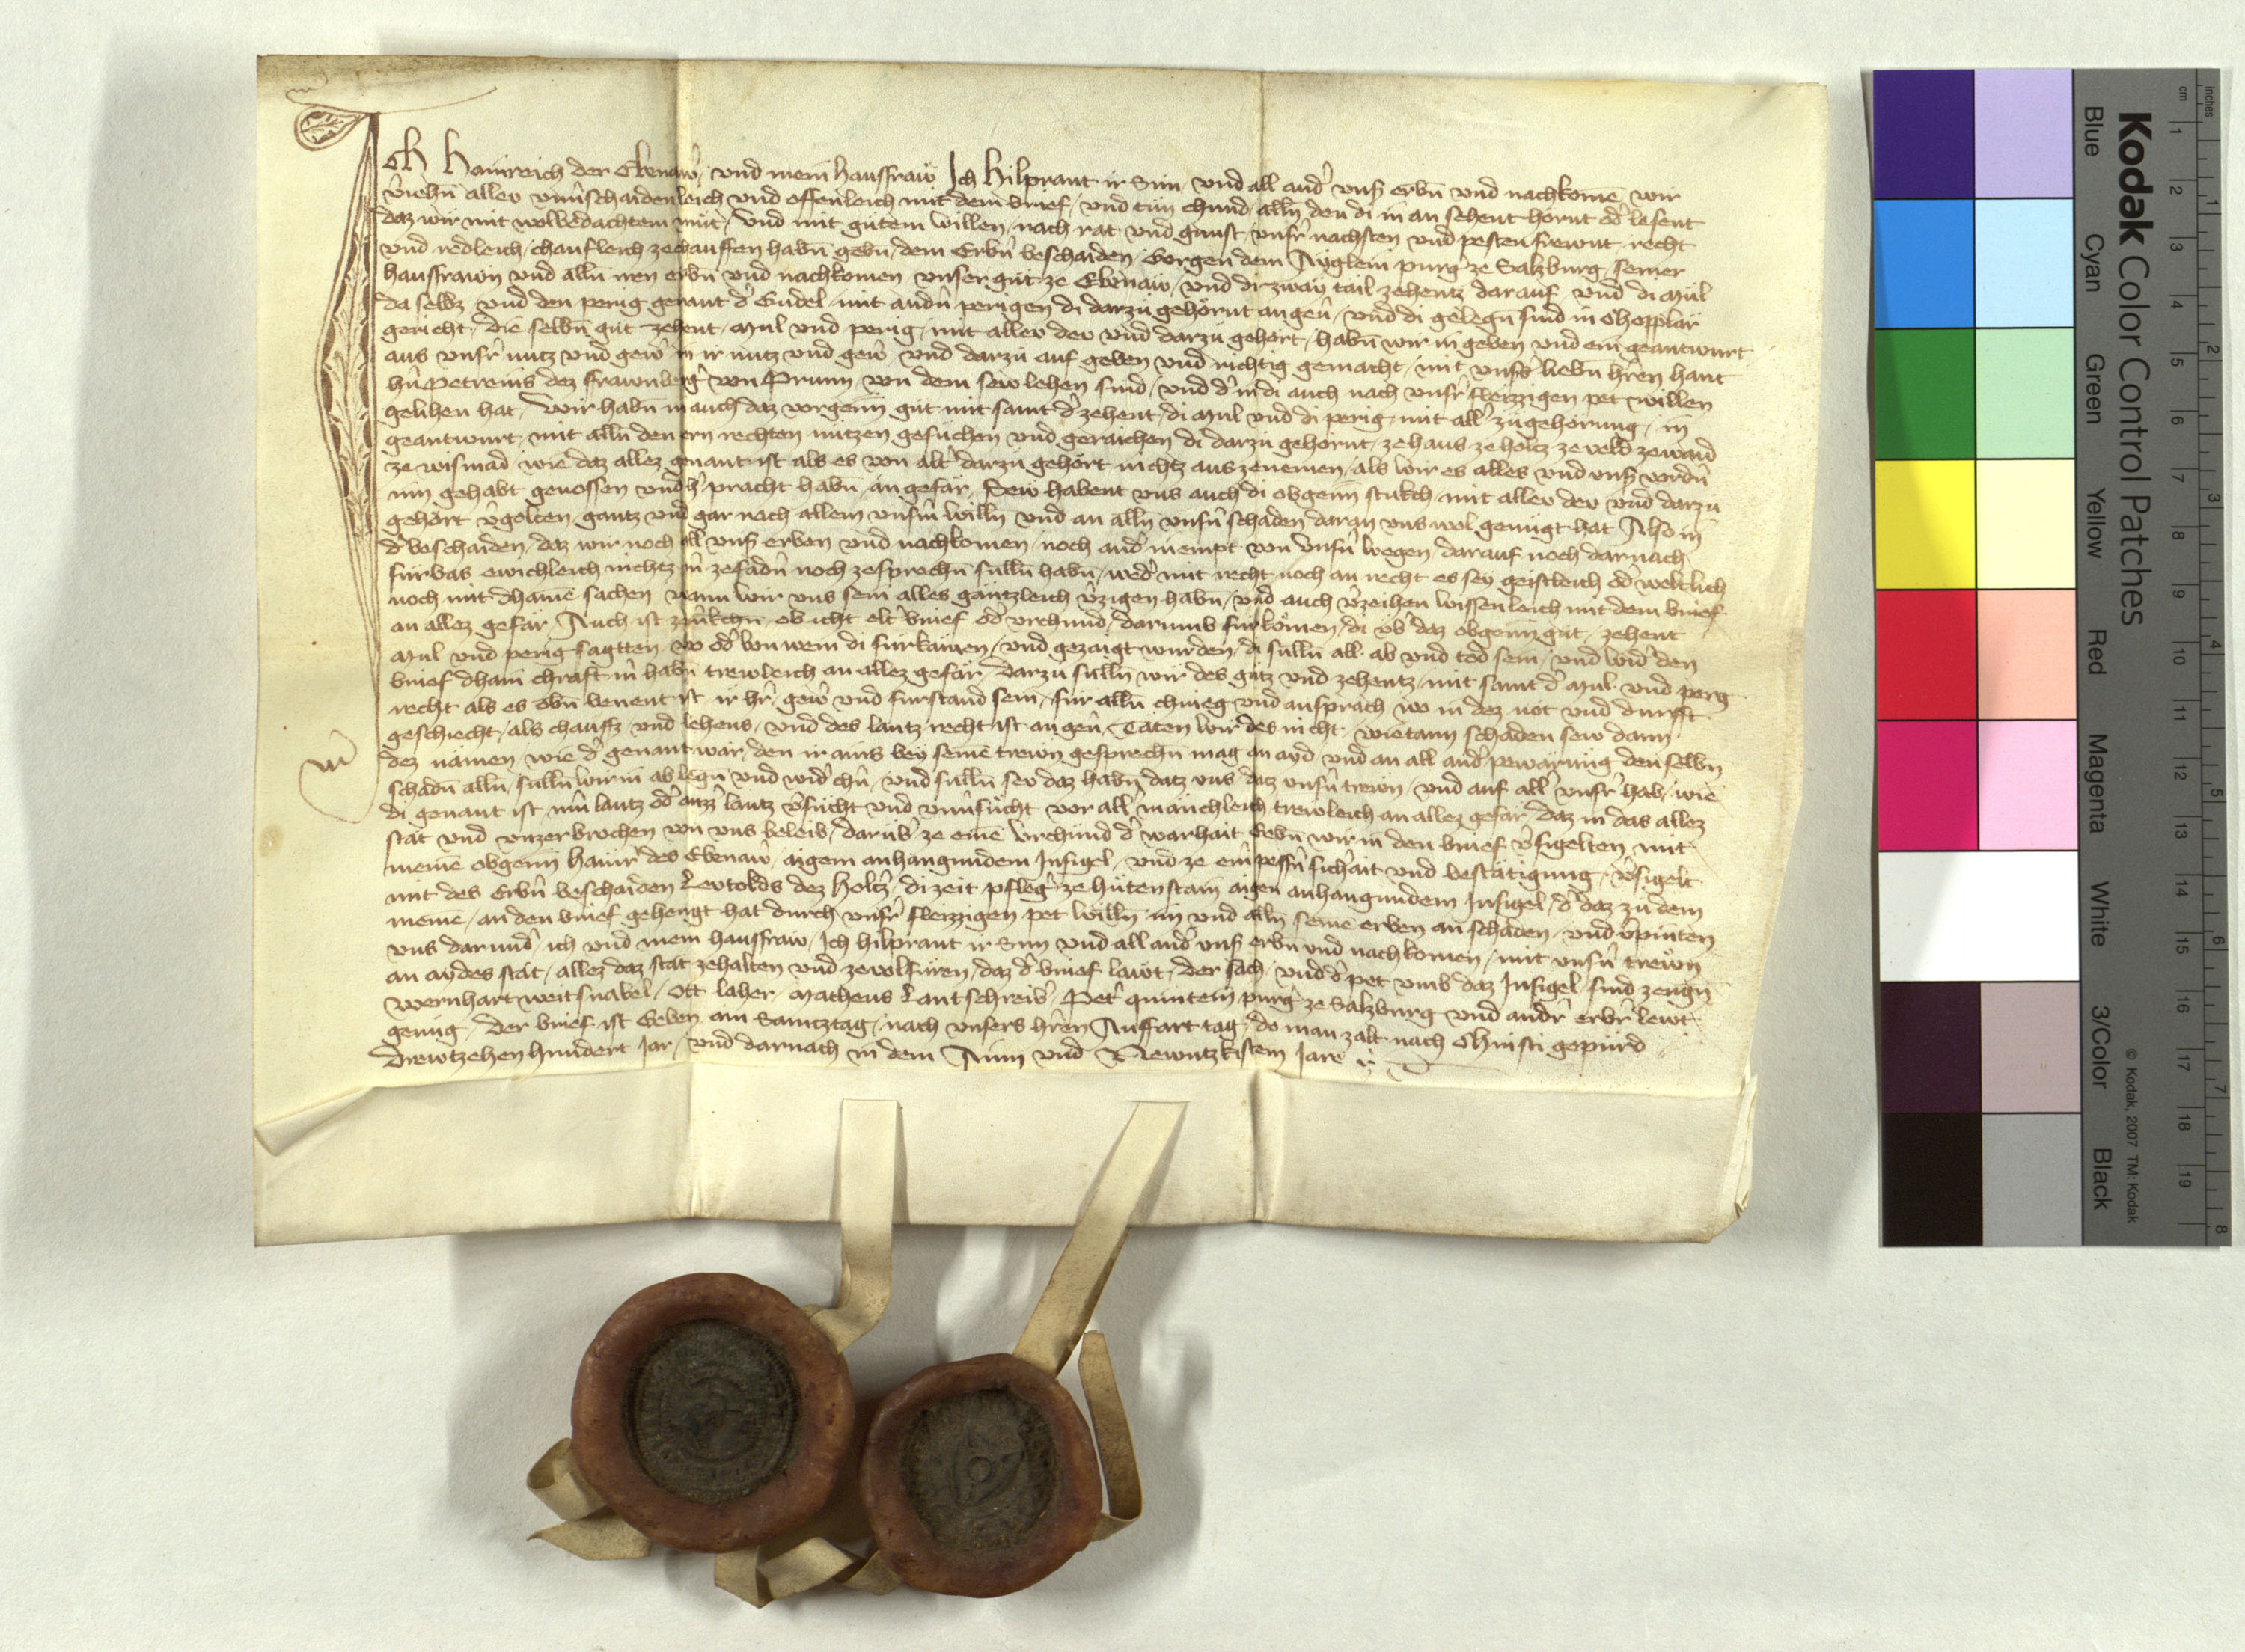 Ich Hainreich der Ebenaw̉ und mein hausfraw Ich Hilprant ir Sun und all and̉ unß erbn̄ und nachkomē wir
v̉iehn̄ aller unv̉schaidenleich und offenleich mit dem brief / und tun chund / alln̄ den di in an sehent hörnt od̉ lesent
daz wir mit wolbedachtem mut / und mit gutem willen / nach rat und gunst unsr̉ nachsten und pesten frewnt recht
und redleich / chaufleich ze chauffen habn̄ gebn̄ / dem Erbn̉ beschaiden / Gorgen dem Aygleim purg̉ ze Salzburg / seiner
hausfrawn und alln̄ iren erbn̄ und nachkomen unser gut ze Ebenaw / und di zway tail zehentz darauf und di Mul
da selbz und den perig genant d̉ Gudel / mit andn̉ perigen di darzu gehörnt angeu̅ / und di gelegn̄ sind in Chopplär
gericht / die selbn̄ gut zehent / Mul und perig / mit aller der und darzu gehört / habn̄ wir in geben und ein geantwurt
aus unsr̉ nutz und gew̉ in ir nutz und gew̉ und darzu auf geben und richtig gemacht / mit unsß liebn̄ hr̉ren hant
hn̉ Petreins dez Frawnberg̉ von Prunn / von dem sew lehen sind / und d̉ in di auch nach unsr̉ fleizzigen pet willen
gelihen hat / Wir habn̄ in auch daz vorgen̄n gut mit samt d̉ zehent / di Mul und di perig / mit all̉ zugehörung / in
geantwurt / mit alln̄ den ern rechten nutzen gesuchen und geraichen di darzu gehörnt / ze haus ze holtz ze veld ze waid
ze wismad wie daz allez genant ist als es von alt̉ darzu gehört nichtz aus zenemen / als wir es alles und unß vordn̉
inn gehabt genossen und h̉ pracht habn̄ / an gefär / Sew habent uns auch di obgen̄n stukch / mit aller der und darzu
gehört v̉golten gantz und gar nach allem unsm̉ willn̄ und an alln̄ unsn̉ schaden daran uns wol genügt hat Also in
d̉ beschaiden / daz wir noch all unß erben und nachkomen / noch and̉ niempt von unsn̉ wegen / darauf noch darnach
fürbas ewichleich nichtz m̉ ze fadn̉ noch ze sprechn̄ sulln̄ habn̄ / wed̉ mit recht noch an recht es sey geistleich od̉ weltlich
noch mit dhaine sachen wann wir uns sein alles gäntzleich v̉zigen habn̄ / und auch v̉zeihen wissenleich mit dem brief
an allez gefär / Auch ist zem̉kchn̄ ob icht elt̉ brief od̉ urchund / darumb fürkömen / di üb̉ daz obgen̄n gut / zehent
Mul und perig sagtten wo od̉ von wem di fürkämen / und gezaigt wurden / di sulln̄ all ab und tod sein / und wid̉ den
brief dhain chraft n̉ habn̄ trewleich an allez gefär / darzu sulln̄ wir des gutz und zehentz / mit samt d̉ Mul und perg
recht als es obn̄ benent ist ir hr̉ / gew̉ und fürstand sein / für alln̄ chrieg und ansprach wo in dez not und durfft
geschiecht / als chauffz und lehens / und des lantz recht ist an geu̅ / Täten wir des nicht / wietann schaden sew dann
dez nämen / wie d̉ genant wär / den ir ains bey seinē trewn gesprechn̄ mag an ayd / und an all and̉ pewärüng den selbn̄
schadn̄ alln̄ / sulln̄ wir in ab legn̄ und wid̉ chn̉ / und sulln̄ sew daz habn̄ datz uns datz unsn̉ trewn / und auf all̉ unsr̉ hab / wie
di genant ist inn̉ lantz od̉ auzz̉ lantz v̉sucht und unv̉sucht vor all̉ mänchleich trewleich an allez gefär / daz in das allez
stät und unzerbrochen von uns beleib / darüb̉ ze einē urchünd d̉ warhait Gebn̄ wir in den brief v̉sigelten mit
meinē obgen̄n Hainr̉ des Ebenaw̉ aigem anhangundem Insigel / und ze ein̉ pessn̉ sich̉ait und bestätigung / v̉sigelt
mit des Erbn̉ beschaiden Leutolds dez Holtz̉ / di zeit pfleg̉ ze Hütenstain aigen anhangundem Insigel / d̉ daz zu dem
meinē / an den brief gehengt hat durch unsr̉ fleizzigen pet willn̄ im und alln̄ seinē erben an schaden / und v̉pinten
uns darund̉ / ich und mein hausfraw / Ich Hilprant ir Sun und all and̉ unß erbn̄ und nachkomen / mit unsn̉ trewn
an aydes stat / allez daz stät ze halten und ze volfüren / daz d̉ brief lawt / der sach / und d̉ pet umb daz Insigel / sind zeugn̄
Wernhart Weitsnabel / Ott Laher / Matheus Lantschreib̉ / Pet̉ Quintein purg̉ ze Salzburg und andr̉ erbr̉ lewt
genüg / Der brief ist Geben am Samtztag / nach unsers hr̉ren Auffart tag / do man zalt nach Christi gepurd
Drewtzehen hundert Jar / und darnach in dem Ainn und Newntzkistem Jare
Kodak Color Control Patches
Blue Cyan Green Yellow Red Magenta White 3/Color Black
© Kodak, 2007 TM: Kodak
inches 1 2 3 4 5 6 7 8
cm 1 2 3 4 5 6 7 8 9 10 11 12 13 14 15 16 17 18 19